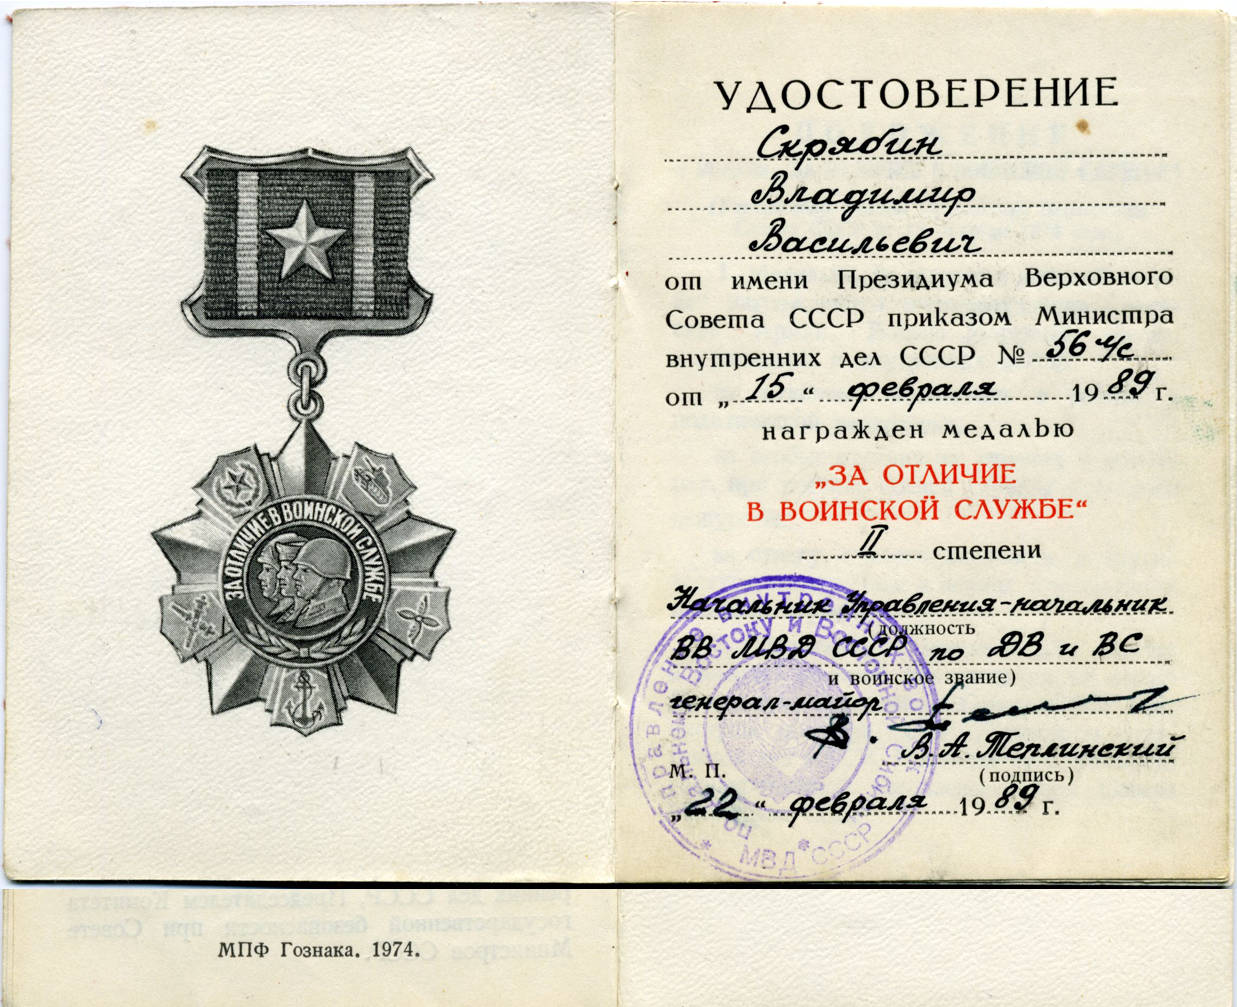 ЗА ОТЛИЧИЕ В ВОИНСКОЙ СЛУЖБЕ
УДОСТОВЕРЕНИЕ
Скрябин
Владимир
Васильевич
от имени Президиума Верховного
Совета СССР приказом Министра
внутренних дел СССР № 56 л/с
от „15“ февраля 1989 г.
награжден медалью
„ЗА ОТЛИЧИЕ
В ВОИНСКОЙ СЛУЖБЕ“
II степени
Начальник Управления-начальник
(должность
ВВ МВД СССР по ДВ и ВС
и воинское звание)
генерал-майор
В. А. Теплинский
М. П.
(подпись)
„22“ февраля 1989 г.
Управление внутренних войск
по Дальнему Востоку и Восточной Сибири
* МВД СССР *
МПФ Гознака. 1974.